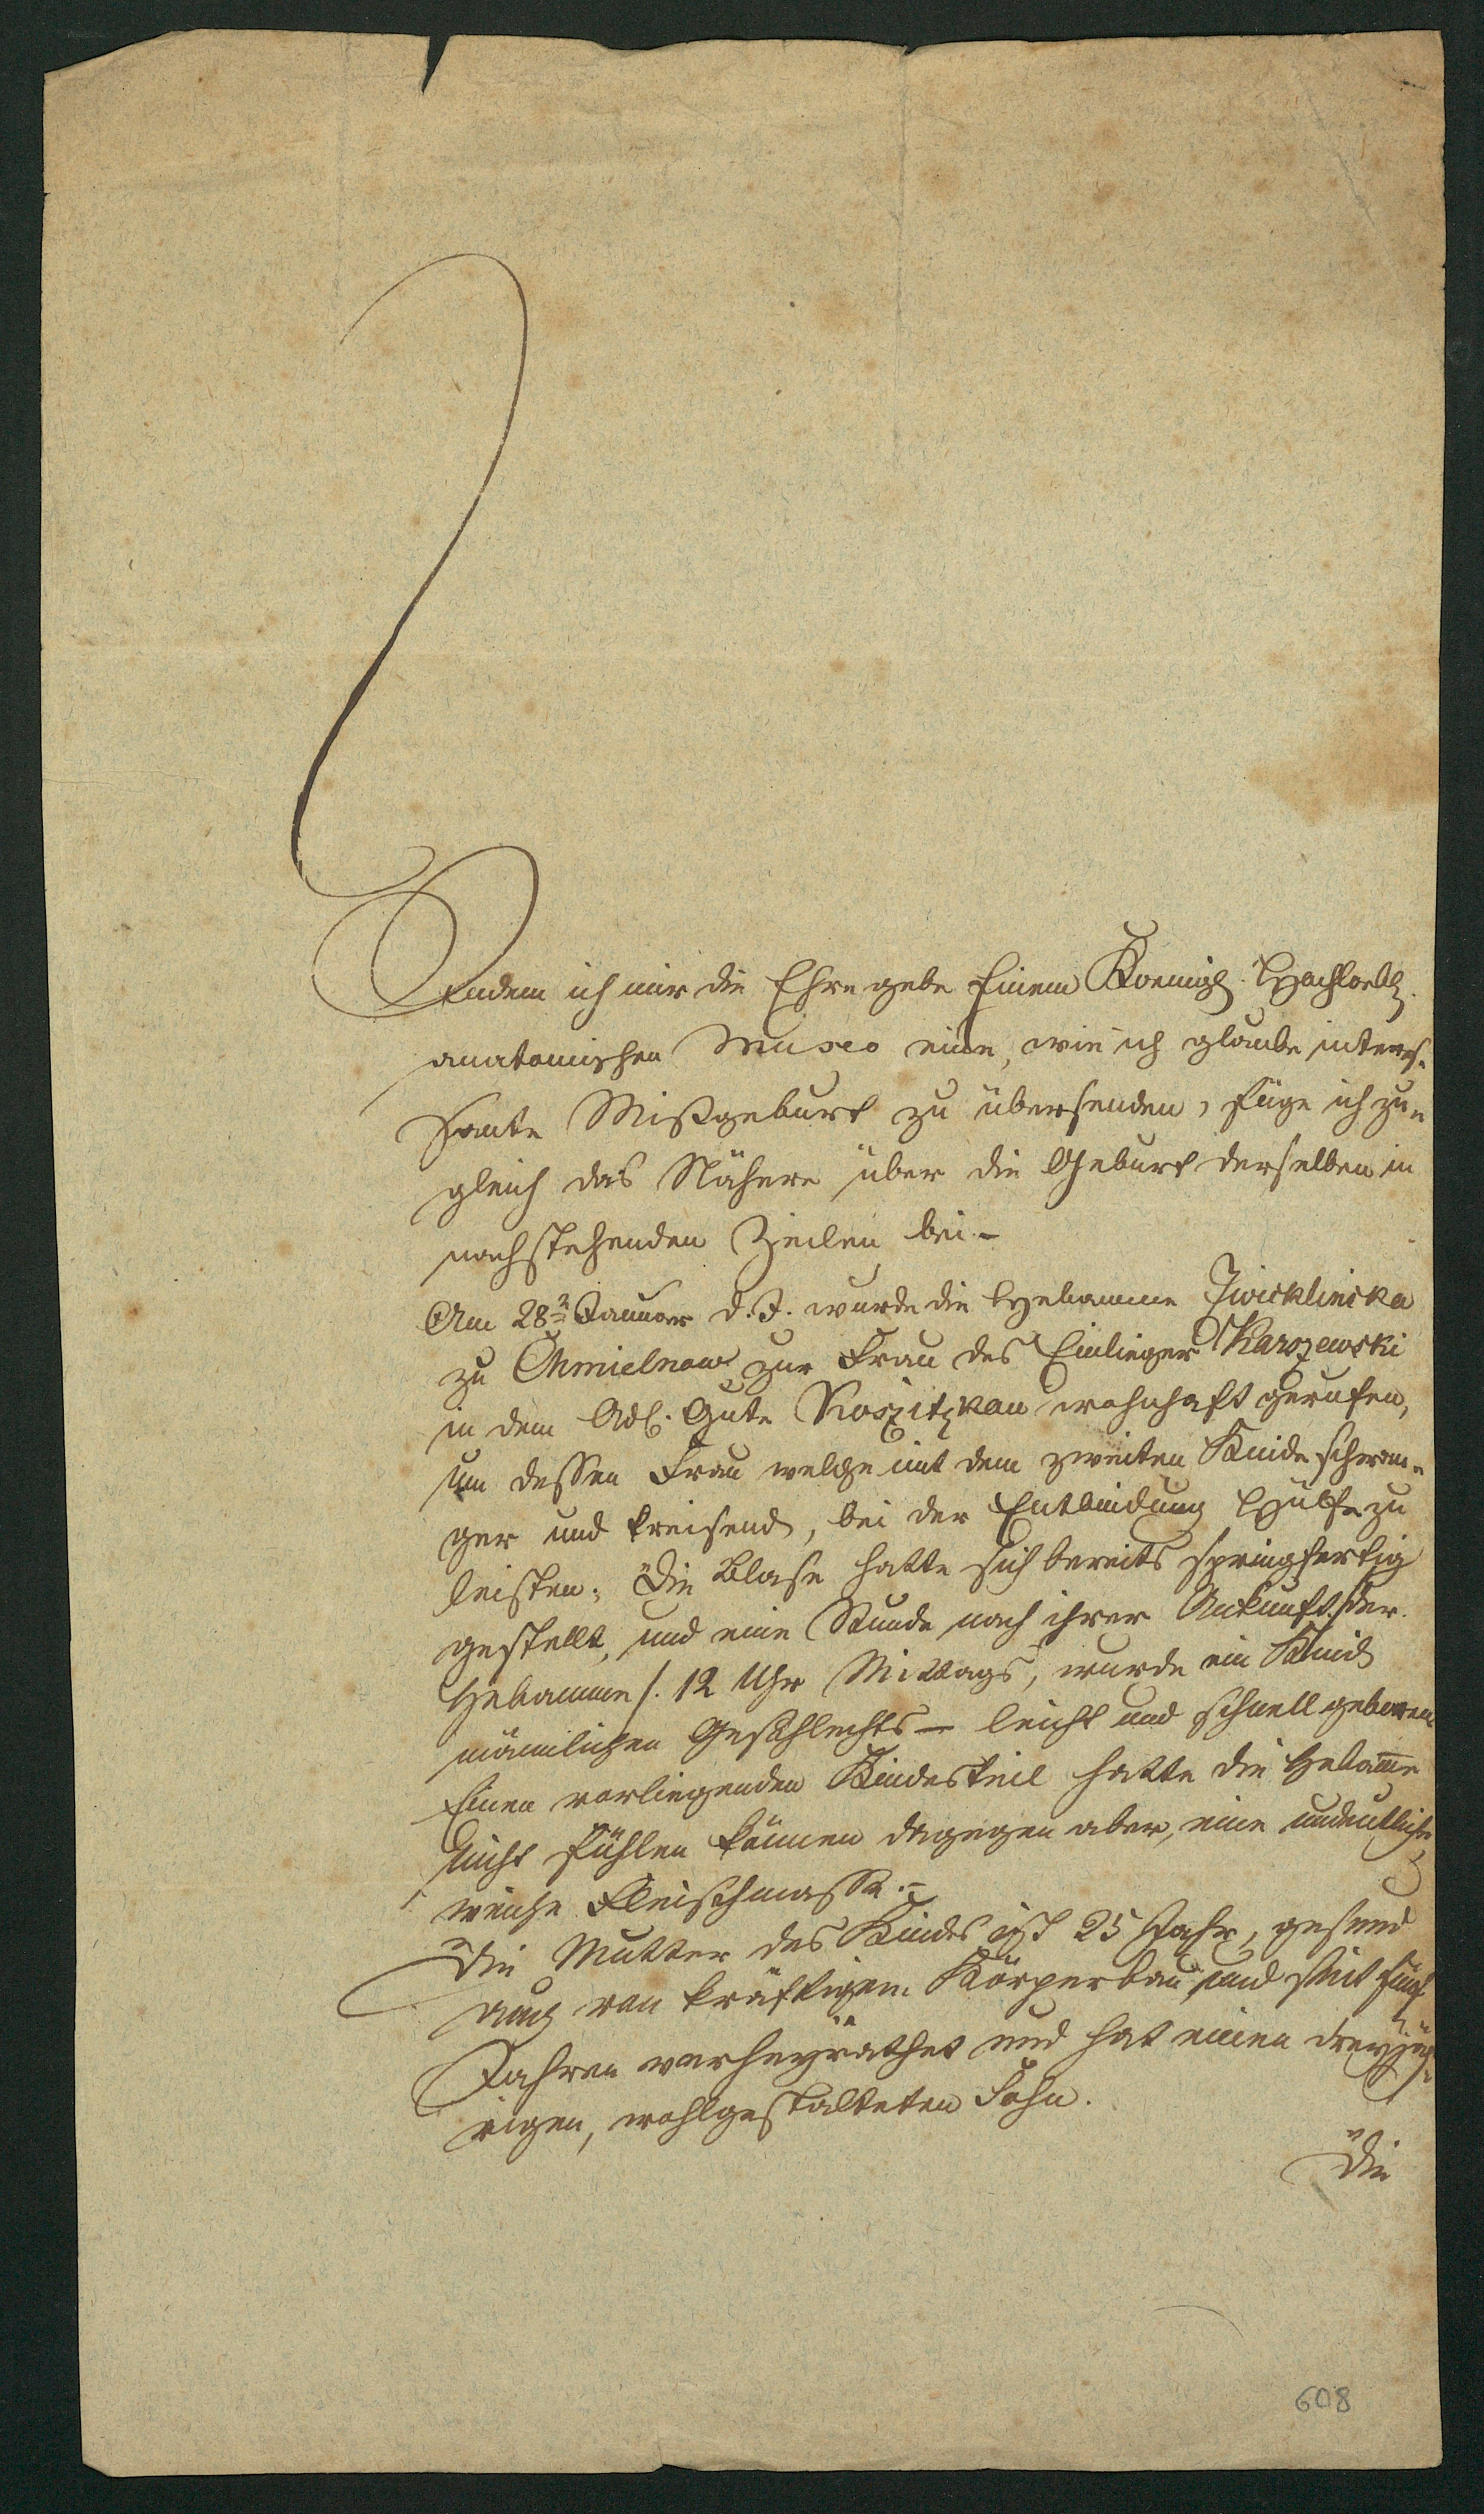 Indem ich mir die Ehre gebe Einem Koenigl. Hochloebl.
anatomischen Museo eine, wie ich glaube interes-
sante Mißgeburt zu übersenden, füge ich zu-
gleich das Nähere über die Geburt derselben in
nachstehenden Zeilen bei. –
Am 28n Januar d. J. wurde die Hebamme
zu Chmielnow zur Frau des Einlieger Karszewski
in dem Adl. Gute Koszitzkau wohnhaft gerufen,
um dessen Frau welche mit dem zweiten Kinde schwan-
ger und kreisend, bei der Entbindung Hülfe zu
leisten. Die Blase hatte sich bereits springfertig
gestellt, und eine Stunde nach ihrer Ankunft /: der
Hebamme /. 12 Uhr Mittags, wurde ein Kind
männlichen Geschlechts – leicht und schnell geboren
Einen vorliegenden Kindestheil hatte die Hebamme
nicht fühlen können dagegen aber, eine undeutliche
weiche Fleischmasse. –
Die Mutter des Kindes ist 25 Jahr, gesund
auch von kräftigem Körperbau und seit fünf
Jahren verheyrathet und hat einen dreyjäh-
rigen, wohlgestalteten Sohn.
Die
608